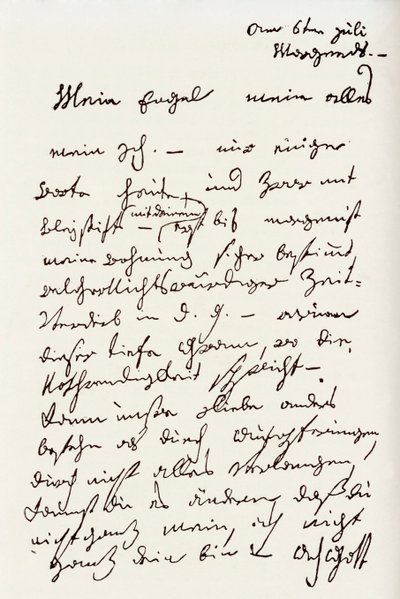 am 6ten Juli
Morgends. –
Mein Engel mein alles
mein Ich. – nur einige
Worte heute, und zwar mit
Bleistift – mit deinem erst bis morgen ist
meine Wohnung sicher bestimmt
welcher Nichtswürdiger Zeit-
Verderb in d. g. – warum
dieser tiefe Gram, wo die
Nothwendigkeit spricht –
Kann unsre Liebe anders
bestehn als durch Aufopferungen,
durch nicht alles verlangen,
kannst du es ändern, daß du
nicht ganz mein, ich nicht
ganz dein bin – Ach Gott